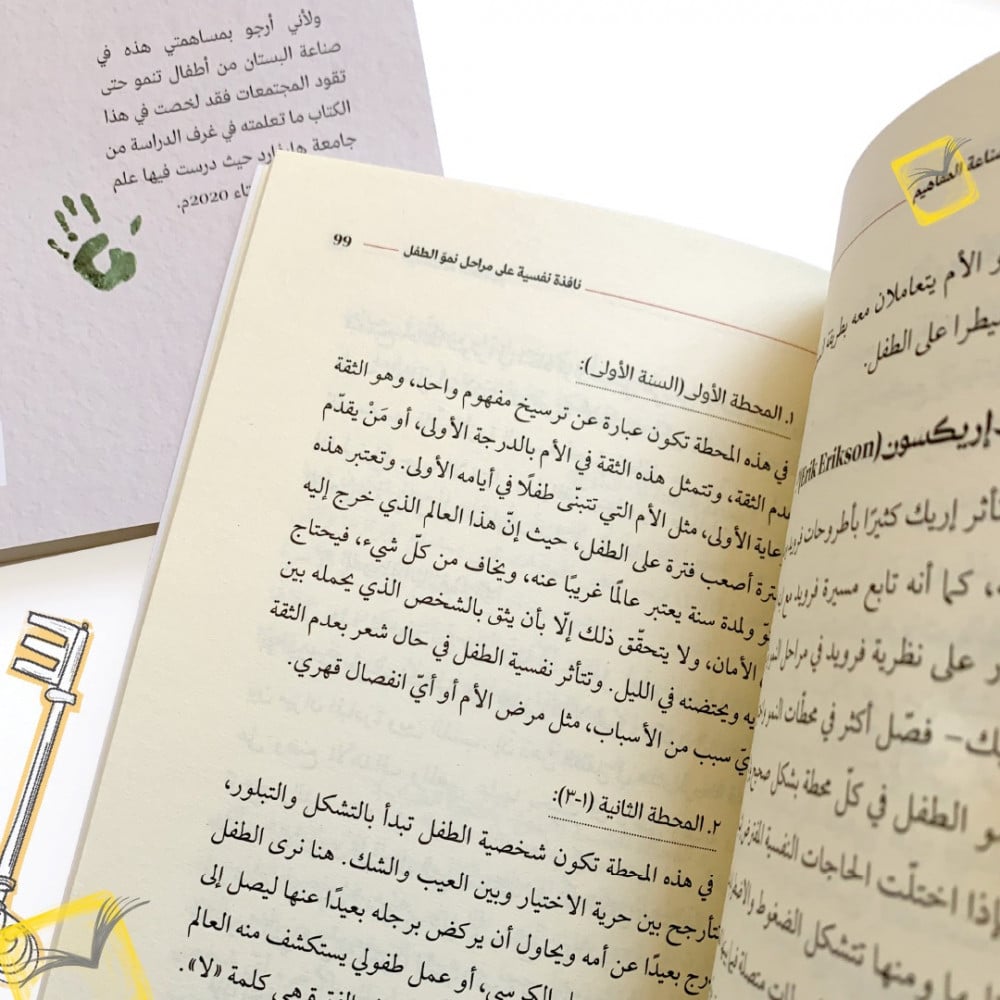 ولأني أرجو بمساهمتي هذه في
صناعة البستان من أطفال تنمو حتى
تقود المجتمعات فقد لخصت في هذا
الكتاب ما تعلمته في غرف الدراسة من
جامعة هارفارد حيث درست فيها علم
2020م.
99
نافذة نفسية على مراحل نموّ الطفل
١. المحطة الأولى(السنة الأولى):
في هذه المحطة تكون عبارة عن ترسيخ مفهوم واحد، وهو الثقة
وتتمثل هذه الثقة في الأم بالدرجة الأولى، أو مَنْ يقدّم
الأولى، مثل الأم التي تتبنّى طفلًا في أيامه الأولى. وتعتبر هذه
أصعب فترة على الطفل، حيث إنّ هذا العالم الذي خرج إليه
ولمدة سنة يعتبر عالمًا غريبًا عنه، ويخاف من كلّ شيء، فيحتاج
الأمان، ولا يتحقّق ذلك إلّا بأن يثق بالشخص الذي يحمله بين
ويحتضنه في الليل. وتتأثر نفسية الطفل في حال شعر بعدم الثقة
سبب من الأسباب، مثل مرض الأم أو أيّ انفصال قهري.
٢. المحطة الثانية (١-٣):
في هذه المحطة تكون شخصية الطفل تبدأ بالتشكل والتبلور،
بين حرية الاختيار وبين العيب والشك. هنا نرى الطفل
بعيدًا عن أمه ويحاول أن يركض برجله بعيدًا عنها ليصل إلى
الكرسي، أو عمل طفولي يستكشف منه العالم
هي كلمة «لا».
المفاهيم
الأم يتعاملان معه بطريقة
على الطفل.
إريكسون(Erik Erikson)
إريك كثيرًا بأطروحات
كما أنه تابع مسيرة فرويد
على نظرية فرويد في مراحل
فصّل أكثر في محطّات النمو
الطفل في كلّ محطة بشكل صحيح
اختلّت الحاجات النفسية
ومنها تتشكل الضغوط
متصلة